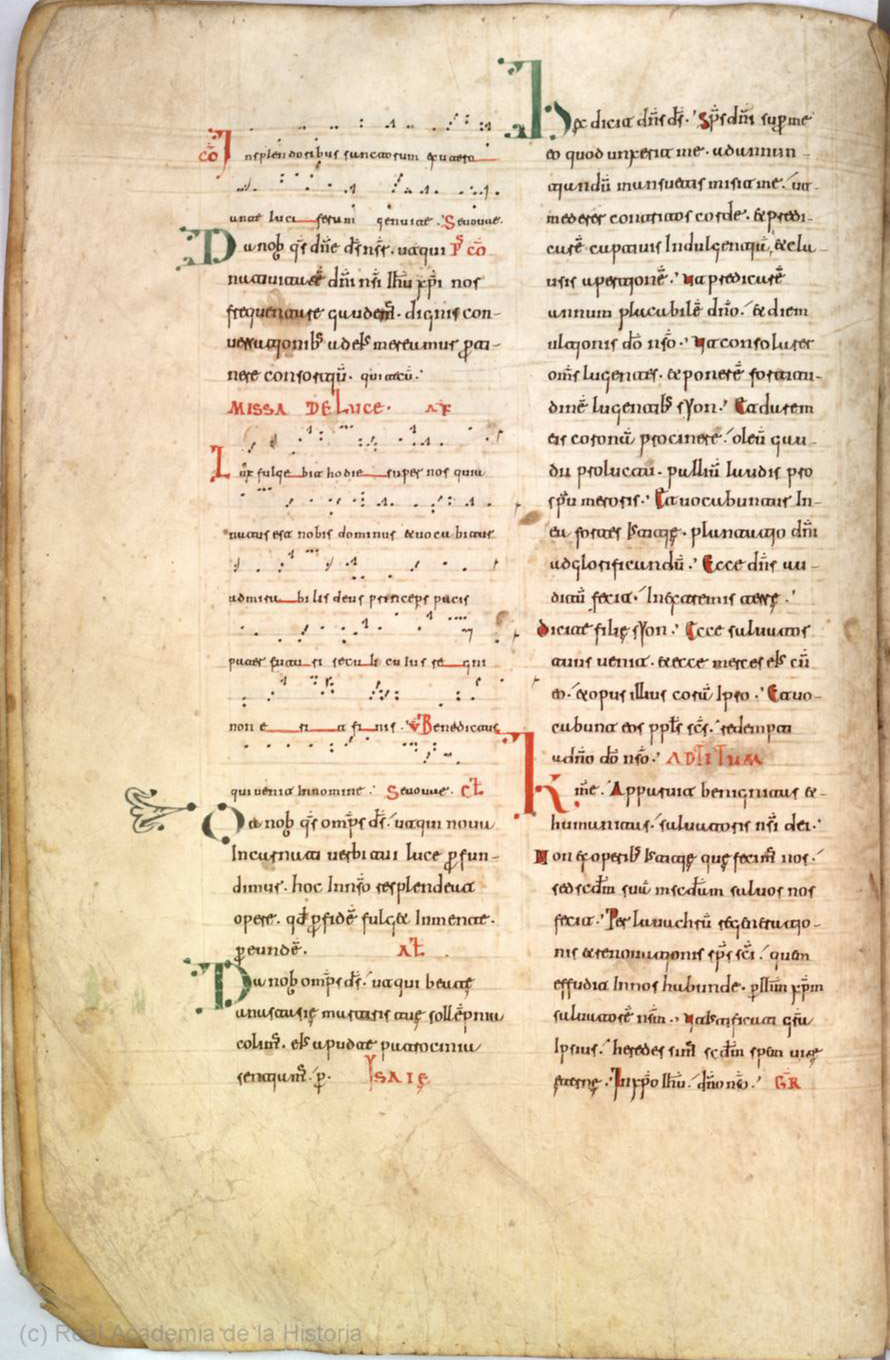 cō In splendoribus sanctorum ex utero
ante luciferum genui te. Seuouae.
Da nob q̄s dn̄e ds̄ nr̄. ut qui P̄ CŌ
natiuitatē dn̄i nr̄i ihū xp̄i nos
frequentare gaudem̄. dignis con-
uersationib; ad eius mereamur ꝑti-
nere consortiū. qui tecū.
MISSA DE Luce. AF
Lux fulgebit hodie super nos quia
natus est nobis dominus & uocabitur
admirabilis deus princeps pacis
pater futuri seculi cuius regni
non erit finis. V Benedicatus
qui uenit In nomine. Seuouae. CŁ
Da nob q̄s omp̄s ds̄. ut qui noua
Incarnati uerbi tui luce ꝑfun-
dimur. hoc In nr̄o resplendeat
opere. qđ ꝑ fidē fulget In mente.
ꝑ eundē. AŁ
Da nob omp̄s ds̄. ut qui beatę
anastasię martiris tuę sollēpnia
colim̄. eius apud te patrocinia
sentiam̄. ꝑ. YSAIĘ
Hęc dicit dn̄s ds̄. Sp̄s dn̄i sup me
eo quod unxerit me. ad annun-
tiandū mansuetis misit me. ut
mederer contritos corde. & predi-
carē captiuis Indulgentiā, & clu-
usis apertionē. Ut predicarē
annum placabilē dn̄o. & diem
ultionis dō nr̄o. Ut consolarer
om̄s lugentes. & ponerē fortitu-
dinē lugentib; syon. Et darem
eis coronā pro cinere. oleū gau-
dii pro luctu. palliū laudis pro
sp̄u meroris. Et uocabuntur In-
ea fortes Iustitię. plantatio dn̄i
ad glorificandū. Ecce dn̄s au-
ditū fecit. In extremis terrę.
dicite filię syon. Ecce saluator
tuus uenit. & ecce merces eius cū
eo. & opus illius corā Ipso. Et uo-
cabunt eos ppl̄s sc̄s. redempti
a dn̄o dō nr̄o. AD TITUM
Kme. Apparuit benignitas &
humanitas. saluatoris nr̄i dei.
Non ex operib; Iustitię quę fecim̄ nos.
sed scd̄m suā mscđam saluos nos
fecit. Per lauachrū regeneratio-
nis & renouationis sp̄s sc̄i. quem
effudit In nos habunde. ꝑ ihm̄ xp̄m
saluatorē nr̄m. Ut Iustificati gr̄a
Ipsius. heredes sim̄ scd̄m spem uitę
ęternę. In xp̄o ihū. dn̄o nr̄o. GR
(c) Real Academia de la Historia